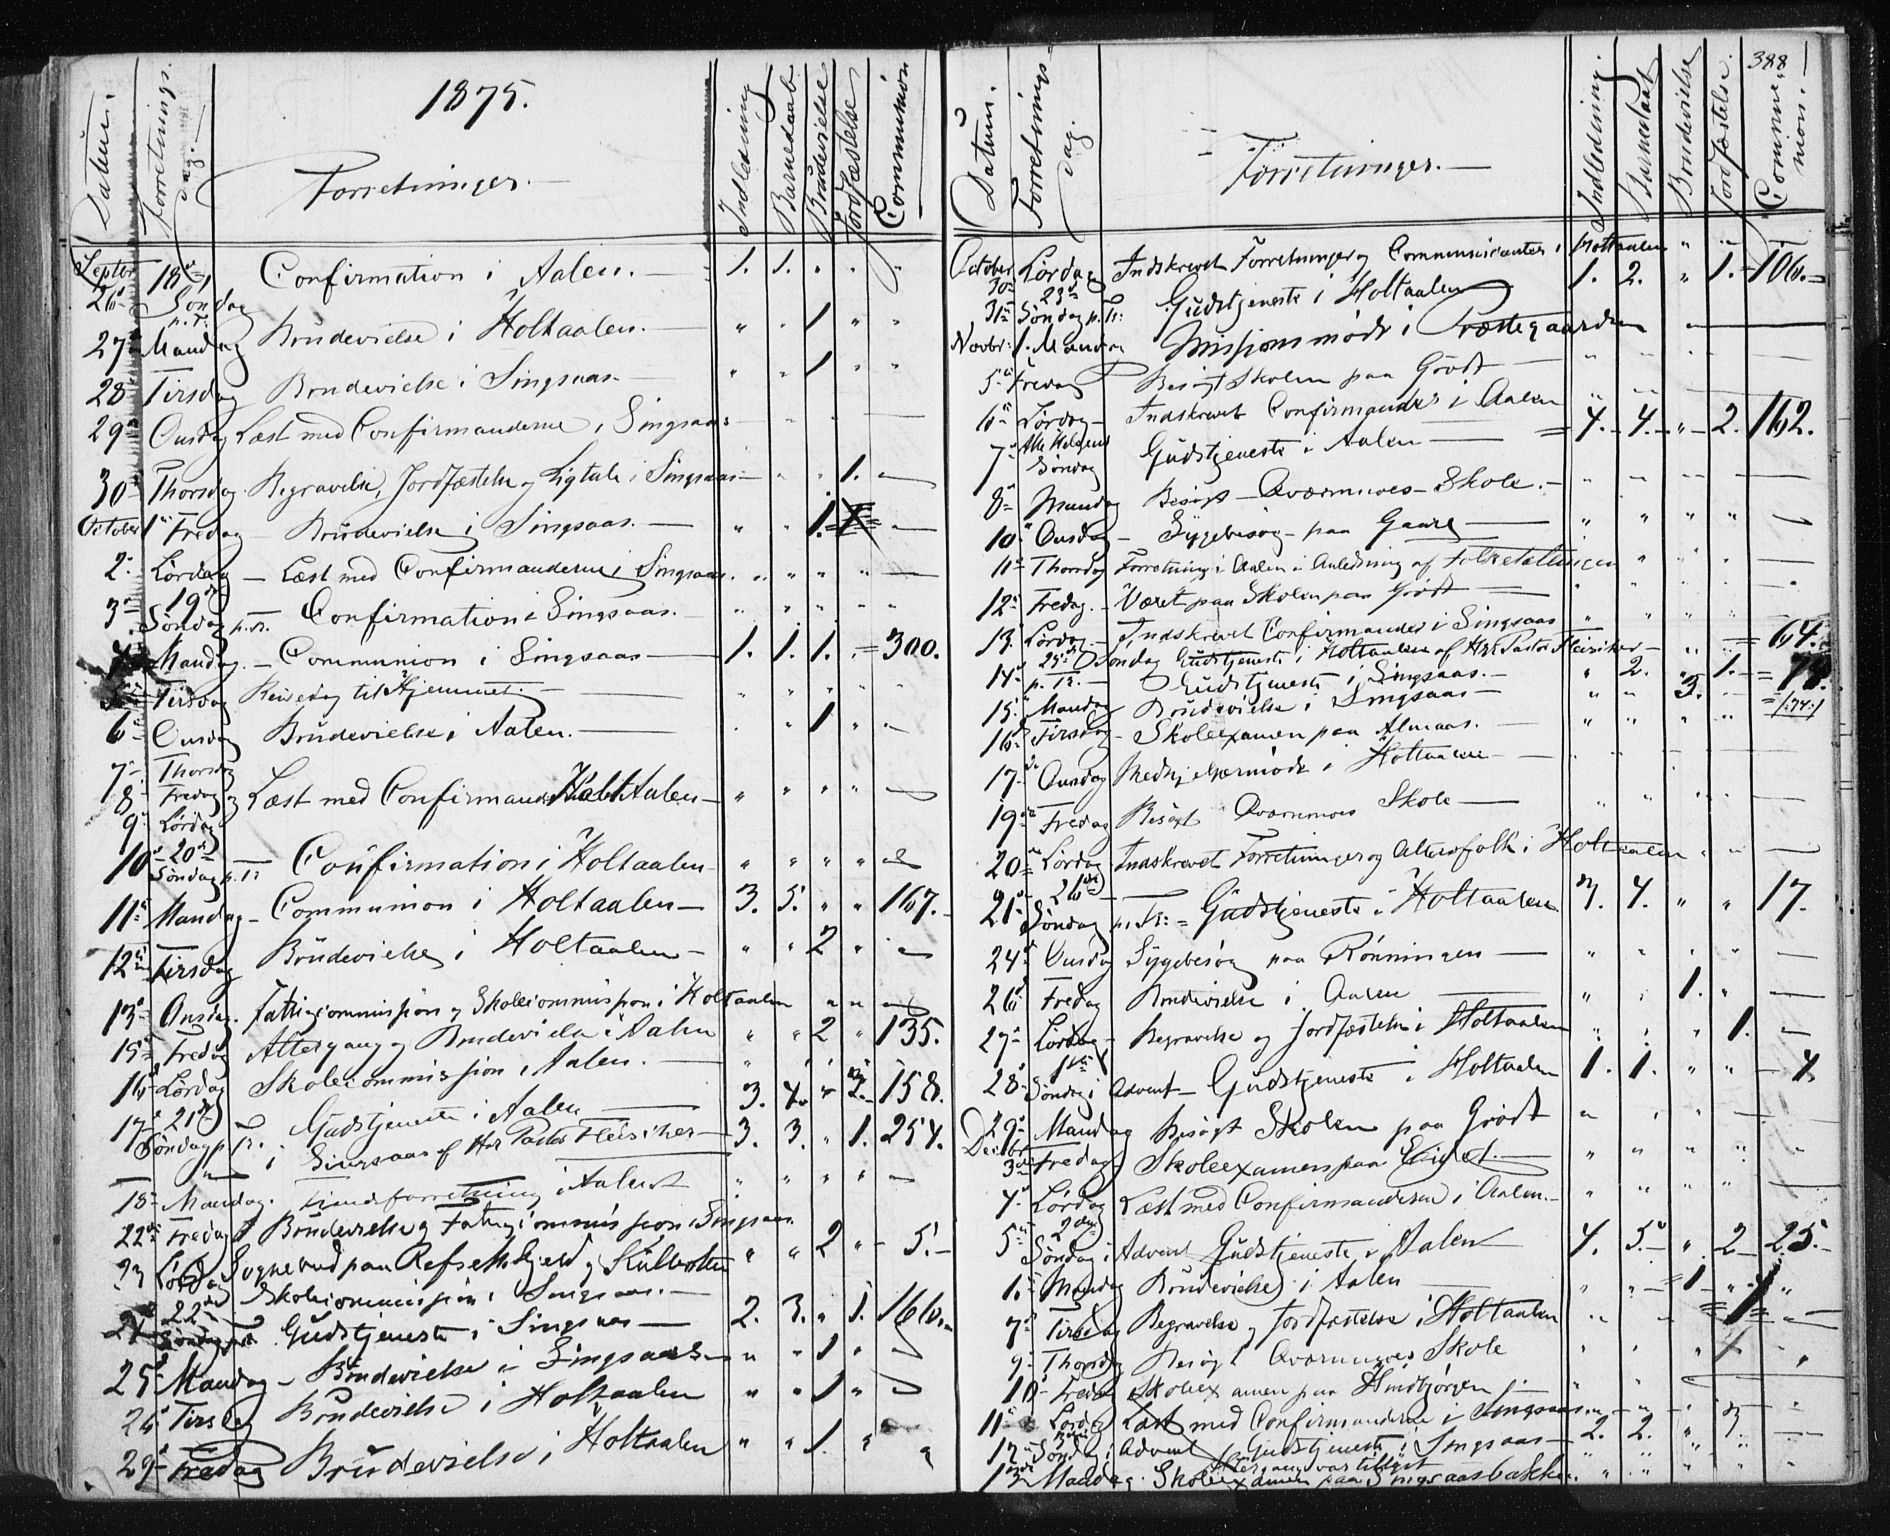 1875.
Datum. Forretnings Dag. Forretninger. Indledning Barnedaab Brudevielse Jordfæstelse Communion
Septbr 26de 18de Søndag p. Tr. Confirmation i Aalen. — 1. 1. " " "
27 Mandag Brudevielse i Holtaalen. — " " 1 " "
28 Tirsdag Brudevielse i Singsaas — " " 1 " "
29 Onsdag Læst med Confirmanderne i Singsaas
30 Thorsdag Begravelse, Jordfæstelse og Ligtale i Singsaas — " " " 1. —
October 1 Fredag — Brudevielse i Singsaas. — " " 1. —
2 Lørdag — Læst med Confirmanderne i Singsaas. " " " " —
3 19de Søndag p. Tr. Confirmation i Singsaas. — " " " " "
4 Mandag. — Communion i Singsaas — 1. 1. 1. = 300.
5 Tirsdag Reisedag til Hjemmet. — " " " " "
6 Onsdag Brudevielse i Aalen. — " " 1 " —
7 Thorsdag
8 Fredag Læst med Confirmand Holtaalen — " " " " —
9 Lørdag
10 20de Søndag p. Tr. — Confirmation i Holtaalen " " " " —
11 Mandag — Communion i Holtaalen — 3. 5. " " 167.
12 Tirsdag Brudevielse i Holtaalen — " " 2 " —
13 Onsdag. Fattigcommission og Skolecommission i Holtaalen " " —
15 Fredag Altergang og Brudevielse i Aalen " " 2 " 135.
16 Lørdag Skolecommission i Aalen. —
17 21de Søndag p. Tr. Gudstjeneste i Aalen — 3. 4. " 2. 158.
" i Singsaas af Hr Pastor Fleischer — 3. 3. " 1. 254.
18 Mandag. forretning i Aalen " " " " —
22 Fredag Brudevielse og Fattigcommission i Singsaas " " 2 " 5. —
23 Lørdag Sognebud paa Refsethfjeld og Kulbotten
Skolecommission i Singsaas. —
24 22de Søndag p. Tr. Gudstjeneste i Singsaas — 2. 3. " 1. 166. —
25 Mandag — Brudevielse i Singsaas — " " 1 " —
26 Tirsdag Brudevielse i Holtaalen " " 1 " —
29 Fredag Brudevielse i Holtaalen " " 1. " "
388
Datum. Forretnings Dag. Forretninger. — Indledning. Barnedaab Brudevielse Jordfæstelse. Communion.
October 30 Lørdag Indskrevet Forretninger og Communicanter i Holtaalen
31 23de Søndag p. Tr: Gudstjeneste i Holtaalen 1. 2. " 1. — 106. —
Novbr: 1. Mandag Missionsmøde i Præstegaarden
5 Fredag Besøgt Skolen paa Grødt —
6 Lørdag — Indskrevet Confirmander i Aalen
7 Alle Helgens Søndag Gudstjeneste i Aalen — 4. — 4. — " — 2. 162.
8 Mandag Besøgt — Qværnmoes — Skole. —
10 Onsdag — Sygebesøg paa Gaare — " " " " —
11 Thorsdag Forretning i Aalen i Anledning af Folketællingen
12 Fredag. — Været paa Skolen paa Grødt —
13. Lørdag — Indskrevet Confirmander i Singsaas
14 25de Søndag p. Tr. Gudstjeneste i Holtaalen af Hr. Pastor Fleischer — = 64.
Gudstjeneste i Singsaas. — " 2. " 1. — = 74.
15 Mandag Brudevielse i Singsaas — " " 3. " = /:74:/
16 Tirsdag — Skoleexamen paa Almaas. —
17 Onsdag i Holtaalen —
19 Fredag Besøgt Qværnmoes Skole —
20 Lørdag Indskrevet Forretninger og Altersfolk i Holtaalen
21 26de Søndag p. Tr: = Gudstjeneste i Holtaalen 3. 4. " " 17.
24 Onsdag Sygebesøg paa Rønningen —
26 Fredag Brudevielse i Aalen — " " 1. " —
27 Lørdag — Begravelse og Jordfæstelse i Holtaalen " " " 1. —
28 1ste Søndag i Advent — Gudstjeneste i Holtaalen 1. 1. " " — 4.
29 Mandag Besøgt Skolen paa Grødt
Decbr 3 Fredag Skoleexamen paa Eidet. —
4 Lørdag Læst med Confirmanderne i Aalen. —
5 2den Søndag i Advent Gudstjeneste i Aalen 4. 5. — " 2 — 25. —
6 Mandag Brudevielse i Aalen — " " = 1 — " "
7 Tirsdag Begravelse og Jordfæstelse i Holtaalen " " = 1 = —
9 Thorsdag Besøgt Qværnmoes Skole
10 Fredag Skoleexamen paa Hindbjørgen —
11 Lørdag Læst med Confirmanderne i Singsaas
12 Søndag i Advent Gudstjeneste i Singsaas — 2. 2. " 3. —
Altergang var tillyst
13 Mandag. Skoleexamen paa Singsaasbakken.